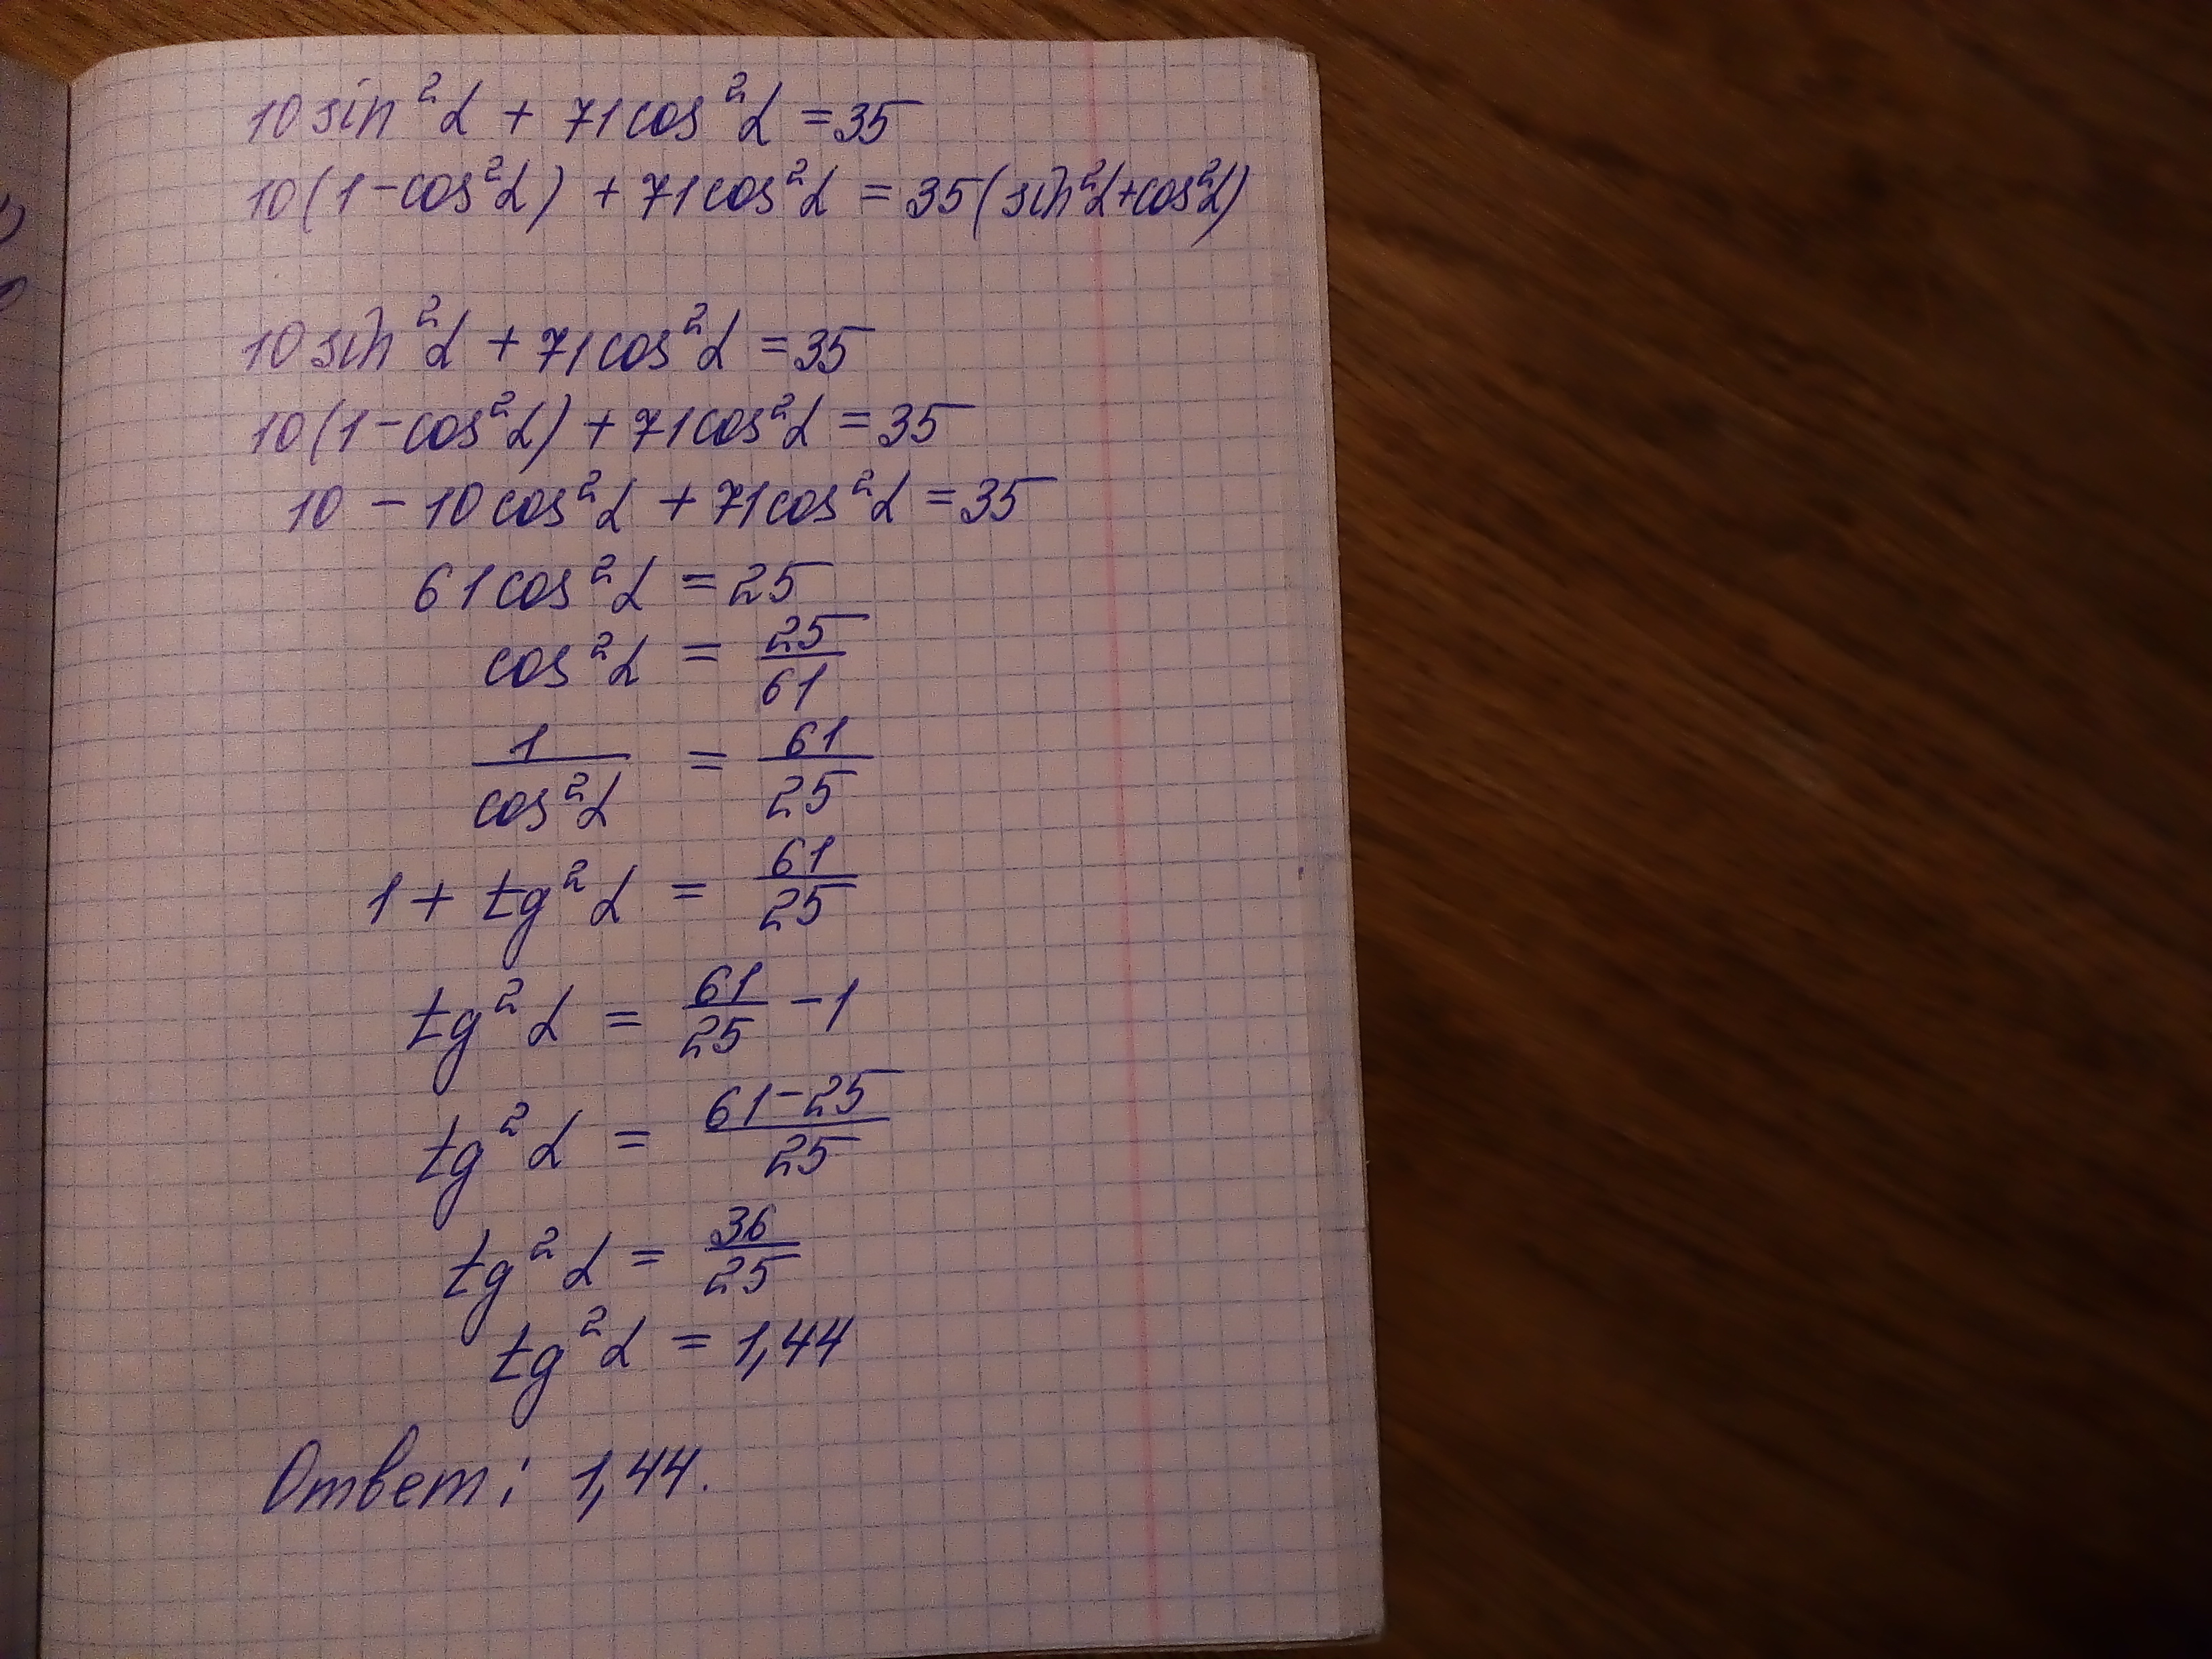 10 sin²α + 71cos²α = 35
10(1-cos²α) + 71cos²α = 35(sin²α+cos²α)
10 sin²α + 71cos²α = 35
10(1-cos²α) + 71cos²α = 35
10 - 10cos²α + 71cos²α = 35
61cos²α = 25
cos²α = 25/61
1/cos²α = 61/25
1 + tg²α = 61/25
tg²α = 61/25 - 1
tg²α = (61-25)/25
tg²α = 36/25
tg²α = 1,44
Ответ: 1,44.